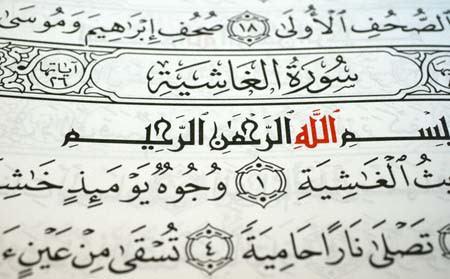 ٱلصُّحُفِ ٱلْأُولَىٰ ١٨ صُحُفِ إِبْرَاهِيمَ وَمُوسَ
سُورَةُ الغَاشِيَةِ آيَاتُهَا ٢٦
بِسْمِ ٱللَّهِ ٱلرَّحْمَٰنِ ٱلرَّحِيمِ
يثُ ٱلْغَاشِيَةِ ١ وُجُوهٌ يَوْمَئِذٍ خَٰشِ
تَصْلَىٰ نَارًا حَامِيَةً ٤ تُسْقَىٰ مِنْ عَيْنٍ ءَ